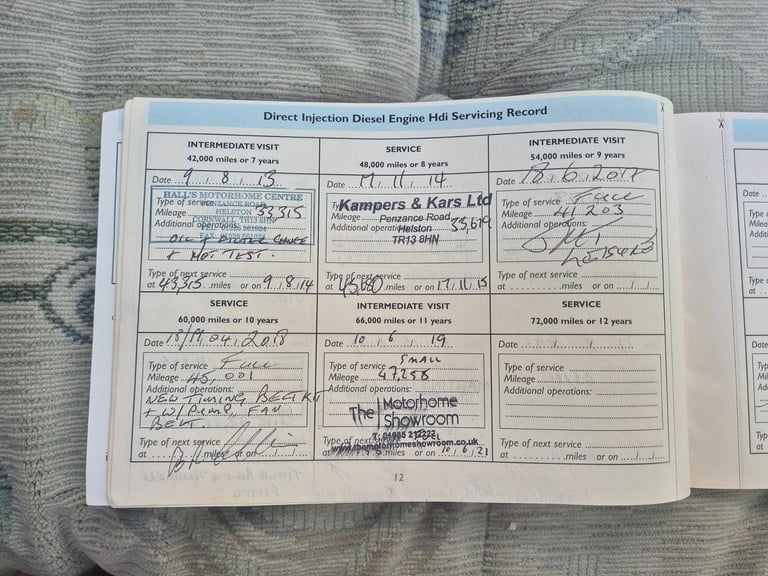 Direct Injection Diesel Engine Hdi Servicing Record
INTERMEDIATE VISIT
42,000 miles or 7 years
Date 9.8.13
HALL'S MOTORHOME CENTRE
PENZANCE ROAD
HELSTON
CORNWALL TR13 8HN
Type of service
Mileage 33,315
Additional operations:
OIL & FILTER CHANGE
& MOT TEST.
Type of next service
at 43,315 miles or on 9.8.14
SERVICE
48,000 miles or 8 years
Date 17.11.14
Kampers & Kars Ltd
Mileage
Penzance Road
Additional operations:
Helston
TR13 8HN
Type of next service
miles or on 17.11.15
INTERMEDIATE VISIT
54,000 miles or 9 years
Date 18.6.201
Type of service Full
Mileage 41,203
Additional operations:
Type of next service
at miles or on
SERVICE
60,000 miles or 10 years
Date 18/19.04.2018
Type of service Full
Mileage 45,001
Additional operations:
NEW TIMING BELT KIT
+ W/PUMP, FAN
BELT.
Type of next service
at miles or on
INTERMEDIATE VISIT
66,000 miles or 11 years
Date 10.6.19
SMALL
Type of service
Mileage 47,258
Additional operations:
The Motorhome
Showroom
Type of next service
www.themotorhomeshowroom.co.uk
or on 10.6.21
SERVICE
72,000 miles or 12 years
Date
Type of service
Mileage
Additional operations:
Type of next service
at miles or on
12